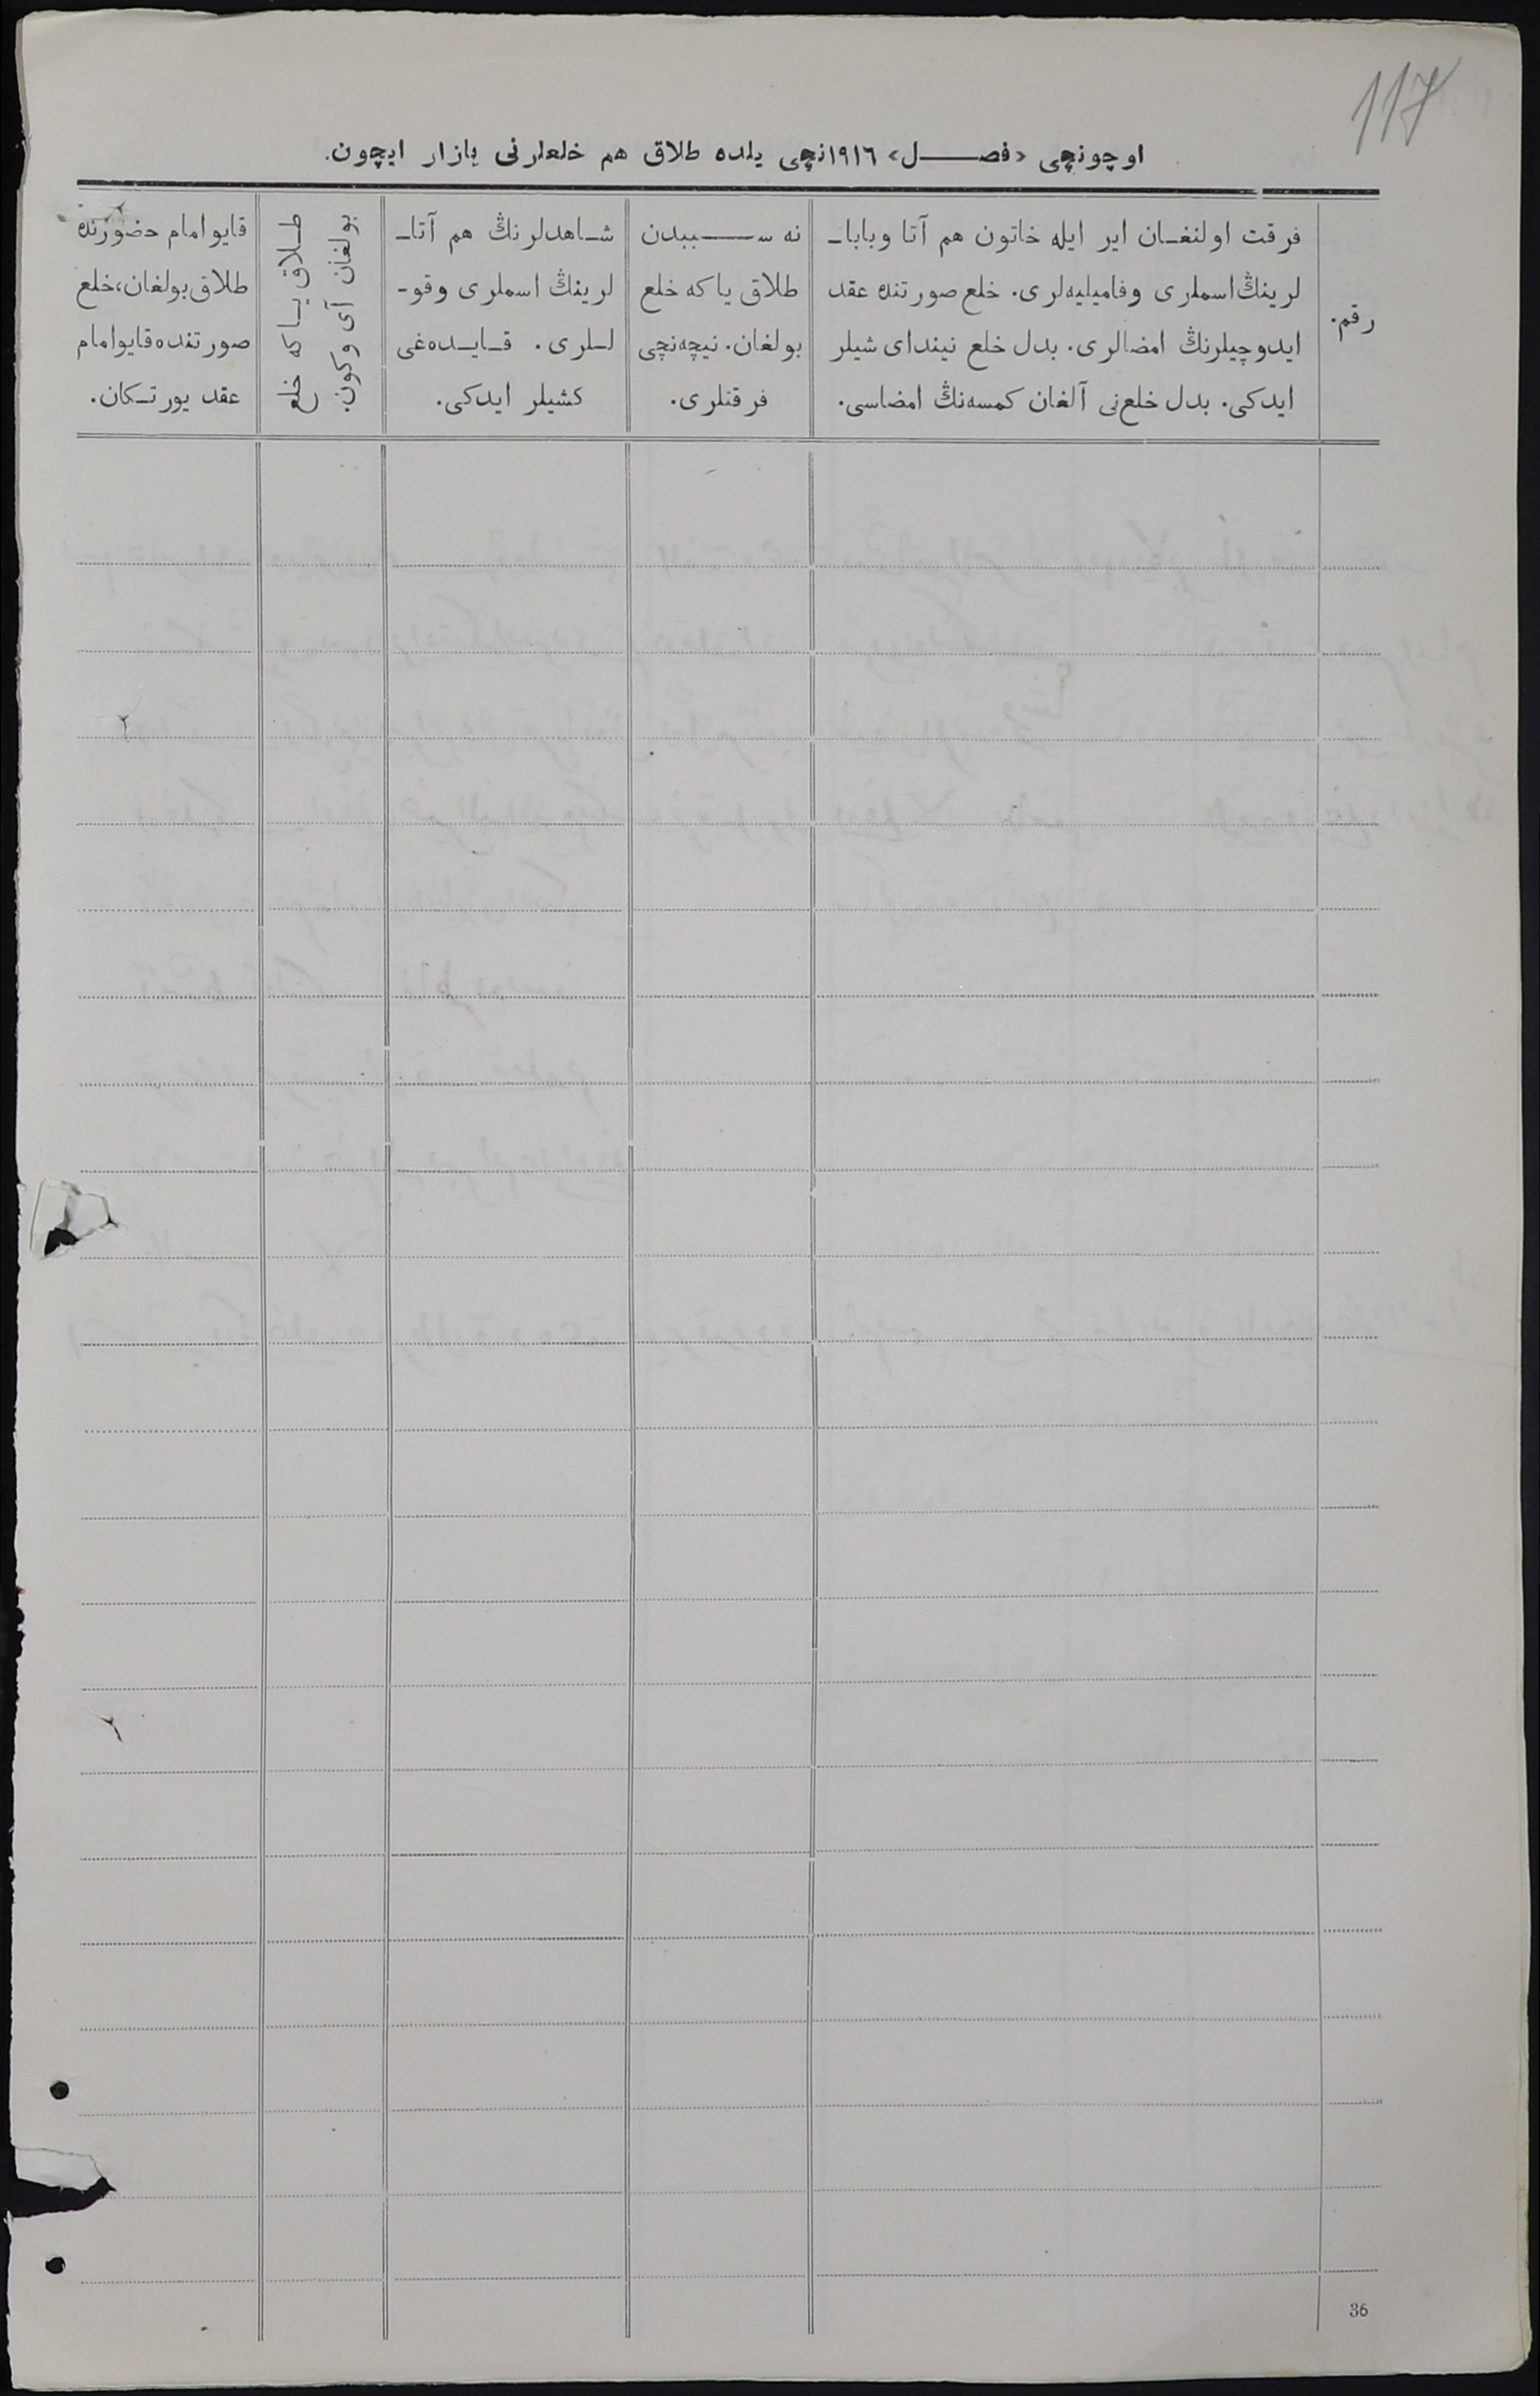 117
اوچونچی «فصل» ١٩١٦نچی یلده طلاق هم خلعلرنی یازار ایچون.
رقم.
فرقت اولنغان ایر ایله خاتون هم آتا وبابا-
لرینڭ اسملری وفامیلیه‌لری. خلع صورتنده عقد
ایدوچیلرنڭ امضالری. بدل خلع نیندای شیلر
ایدکی. بدل خلع‌نی آلغان کمسه‌نڭ امضاسی.
نه سببدن
طلاق یاکه خلع
بولغان. نیچه‌نچی
فرقتلری.
شاهدلرنڭ هم آتا-
لرینڭ اسملری وقو-
للری. قایده‌غی
کشیلر ایدکی.
طلاق یاکه خلع
بولغان آی وکون.
قایو امام حضورنده
طلاق بولغان، خلع
صورتنده قایو امام
عقد یورتکان.
36